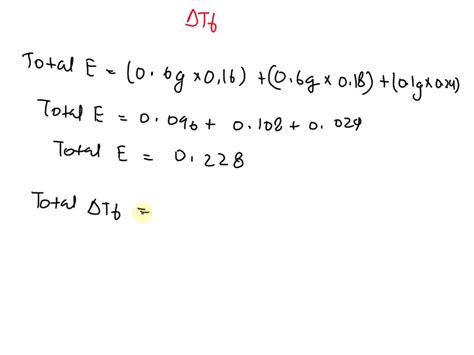 ΔTf
Total E = (0.6g × 0.16) + (0.6g × 0.18) + (0.1g × 0.24)
Total E = 0.096 + 0.108 + 0.024
Total E = 0.228
Total ΔTf =